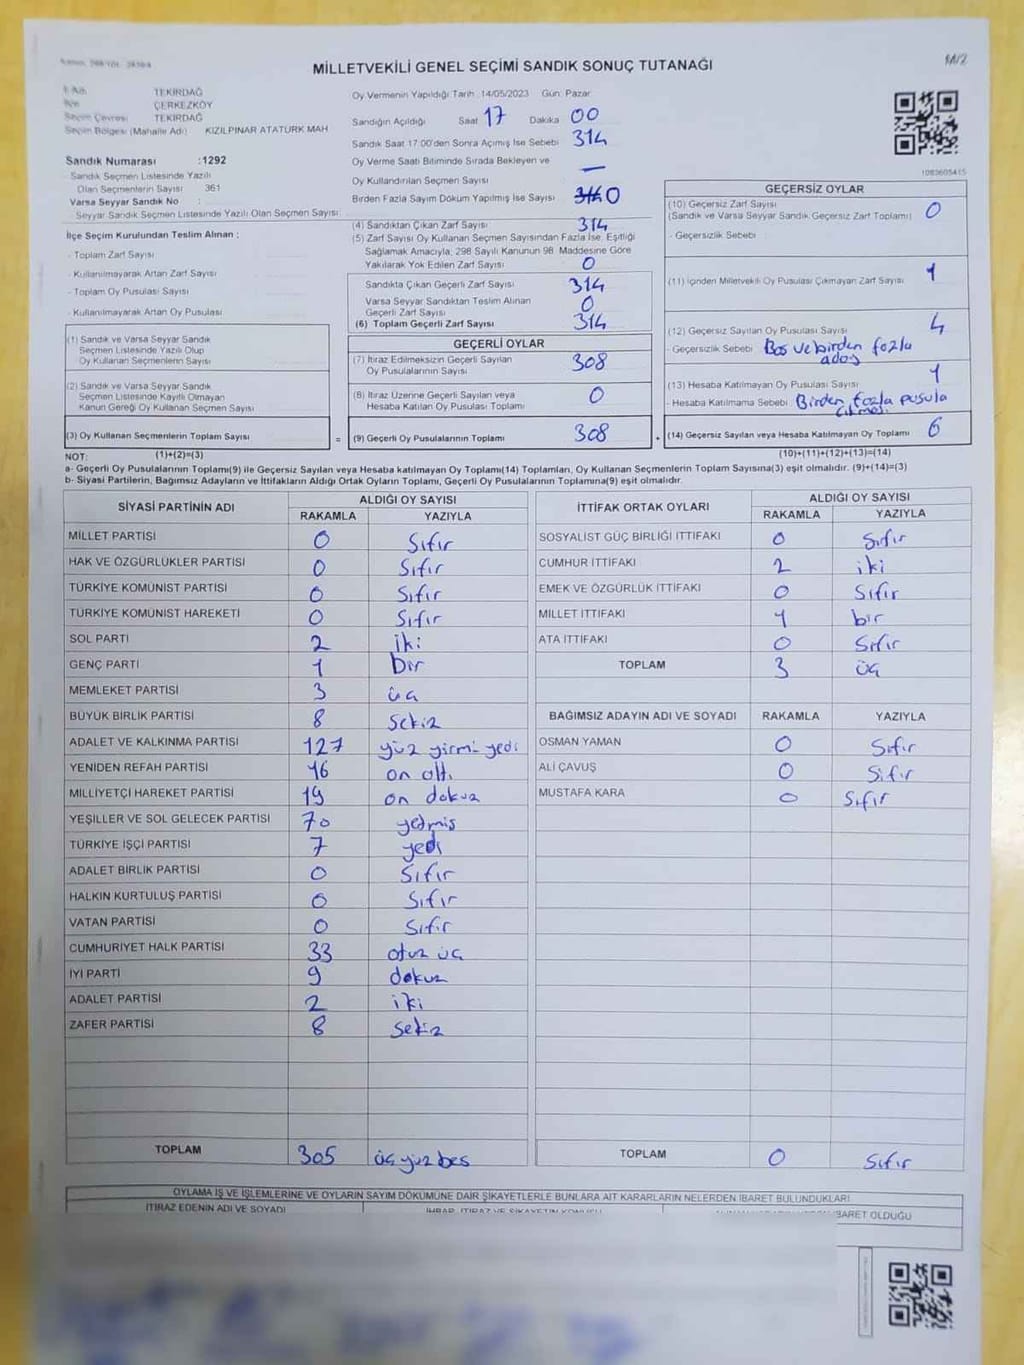 MİLLETVEKİLİ GENEL SEÇİMİ SANDIK SONUÇ TUTANAĞI
M/2
TEKİRDAĞ
ÇERKEZKÖY
Seçim Çevresi TEKİRDAĞ
Seçim Bölgesi (Mahalle Adı) KIZILPINAR ATATÜRK MAH
Sandık Numarası :1292
Sandık Seçmen Listesinde Yazılı
Olan Seçmenlerin Sayısı 361
Varsa Seyyar Sandık No
Seyyar Sandık Seçmen Listesinde Yazılı Olan Seçmen Sayısı
İlçe Seçim Kurulundan Teslim Alınan ;
- Toplam Zarf Sayısı
- Kullanılmayarak Artan Zarf Sayısı
- Toplam Oy Pusulası Sayısı
- Kullanılmayarak Artan Oy Pusulası
(1) Sandık ve Varsa Seyyar Sandık
Seçmen Listesinde Yazılı Olup
Oy Kullanan Seçmenlerin Sayısı
(2) Sandık ve Varsa Seyyar Sandık
Seçmen Listesinde Kayıtlı Olmayan
Kanun Gereği Oy Kullanan Seçmen Sayısı
(3) Oy Kullanan Seçmenlerin Toplam Sayısı =
Oy Vermenin Yapıldığı Tarih :14/05/2023 Gün: Pazar
Sandığın Açıldığı Saat 17 Dakika 00
Sandık Saat 17:00'den Sonra Açılmış İse Sebebi 314
Oy Verme Saati Bitiminde Sırada Bekleyen ve
Oy Kullandırılan Seçmen Sayısı —
Birden Fazla Sayım Döküm Yapılmış İse Sayısı 0
(4) Sandıktan Çıkan Zarf Sayısı 314
(5) Zarf Sayısı Oy Kullanan Seçmen Sayısından Fazla İse, Eşitliği
Sağlamak Amacıyla; 298 Sayılı Kanunun 98. Maddesine Göre
Yakılarak Yok Edilen Zarf Sayısı 0
Sandıkta Çıkan Geçerli Zarf Sayısı 314
Varsa Seyyar Sandıktan Teslim Alınan
Geçerli Zarf Sayısı 0
(6) Toplam Geçerli Zarf Sayısı 314
GEÇERLİ OYLAR
(7) İtiraz Edilmeksizin Geçerli Sayılan
Oy Pusulalarının Sayısı 308
(8) İtiraz Üzerine Geçerli Sayılan veya
Hesaba Katılan Oy Pusulası Toplamı 0
(9) Geçerli Oy Pusulalarının Toplamı 308 +
1083605415
GEÇERSİZ OYLAR
(10) Geçersiz Zarf Sayısı
(Sandık ve Varsa Seyyar Sandık Geçersiz Zarf Toplamı) 0
- Geçersizlik Sebebi
(11) İçinden Milletvekili Oy Pusulası Çıkmayan Zarf Sayısı 1
(12) Geçersiz Sayılan Oy Pusulası Sayısı 4
- Geçersizlik Sebebi Boş ve birden fazla
adoy
(13) Hesaba Katılmayan Oy Pusulası Sayısı 1
- Hesaba Katılmama Sebebi Birden fazla pusula
çıkması
(14) Geçersiz Sayılan veya Hesaba Katılmayan Oy Toplamı 6
NOT: (1)+(2)=(3)
(10)+(11)+(12)+(13)=(14)
a- Geçerli Oy Pusulalarının Toplamı(9) ile Geçersiz Sayılan veya Hesaba katılmayan Oy Toplamı(14) Toplamları, Oy Kullanan Seçmenlerin Toplam Sayısına(3) eşit olmalıdır. (9)+(14)=(3)
b- Siyasi Partilerin, Bağımsız Adayların ve İttifakların Aldığı Ortak Oyların Toplamı, Geçerli Oy Pusulalarının Toplamına(9) eşit olmalıdır.
SİYASİ PARTİNİN ADI ALDIĞI OY SAYISI
RAKAMLA YAZIYLA
MİLLET PARTİSİ 0 Sıfır
HAK VE ÖZGÜRLÜKLER PARTİSİ 0 Sıfır
TÜRKİYE KOMÜNİST PARTİSİ 0 Sıfır
TÜRKİYE KOMÜNİST HAREKETİ 0 Sıfır
SOL PARTİ 2 iki
GENÇ PARTİ 1 bir
MEMLEKET PARTİSİ 3 üç
BÜYÜK BİRLİK PARTİSİ 8 sekiz
ADALET VE KALKINMA PARTİSİ 127 yüz yirmi yedi
YENİDEN REFAH PARTİSİ 16 on altı
MİLLİYETÇİ HAREKET PARTİSİ 19 on dokuz
YEŞİLLER VE SOL GELECEK PARTİSİ 70 yetmiş
TÜRKİYE İŞÇİ PARTİSİ 7 yedi
ADALET BİRLİK PARTİSİ 0 Sıfır
HALKIN KURTULUŞ PARTİSİ 0 Sıfır
VATAN PARTİSİ 0 Sıfır
CUMHURİYET HALK PARTİSİ 33 otuz üç
İYİ PARTİ 9 dokuz
ADALET PARTİSİ 2 iki
ZAFER PARTİSİ 8 sekiz
TOPLAM 305 üç yüz beş
İTTİFAK ORTAK OYLARI ALDIĞI OY SAYISI
RAKAMLA YAZIYLA
SOSYALİST GÜÇ BİRLİĞİ İTTİFAKI 0 Sıfır
CUMHUR İTTİFAKI 2 iki
EMEK VE ÖZGÜRLÜK İTTİFAKI 0 Sıfır
MİLLET İTTİFAKI 1 bir
ATA İTTİFAKI 0 Sıfır
TOPLAM 3 üç
BAĞIMSIZ ADAYIN ADI VE SOYADI RAKAMLA YAZIYLA
OSMAN YAMAN 0 Sıfır
ALİ ÇAVUŞ 0 Sıfır
MUSTAFA KARA 0 Sıfır
TOPLAM 0 Sıfır
OYLAMA İŞ VE İŞLEMLERİNE VE OYLARIN SAYIM DÖKÜMÜNE DAİR ŞİKAYETLERLE BUNLARA AİT KARARLARIN NELERDEN İBARET BULUNDUKLARI
İTİRAZ EDENİN ADI VE SOYADI İHBAR, İTİRAZ VE ŞİKAYETİN KONUSU İBARET OLDUĞU